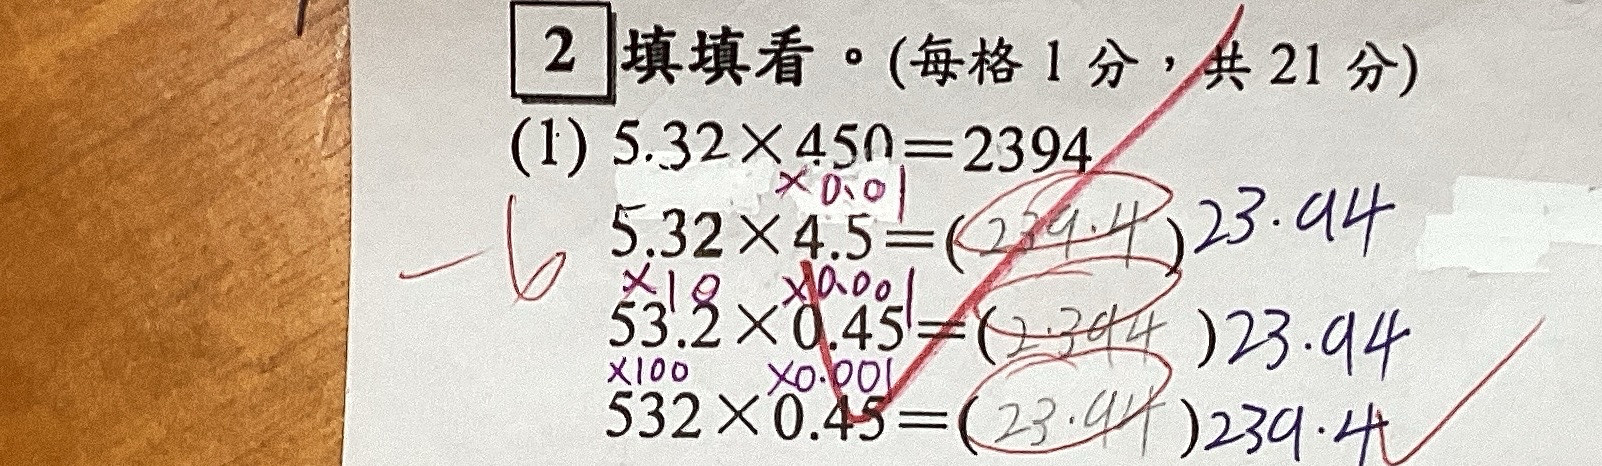 2 填填看。(每格1分，共21分)
(1) 5.32×450=2394
×0.01
-6
5.32×4.5=(239.4)23.94
×10 ×0.001
53.2×0.45=(2.394)23.94
×100 ×0.001
532×0.45=(23.94)239.4